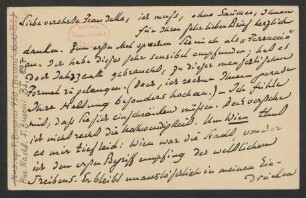 Liebe verehrte Frau Jella, ich muss, ohne Säumen, Ihnen
für Ihren sehr lieben Brief herzlich
danken. Zum ersten Mal sprechen Sie mich als "Ferruccio"
an. Ich habe dieses sehr sensibel empfunden, hat es
doch Jahrzehnte gebraucht, zu dieser menschlichen
Formel zu gelangen. (Doch, ich rechne Ihnen gerade
Ihre Haltung besonders hoch an.) – Ich fühle
mit, dass Sie sich einschränken müssen. Doch verstehe
ich nicht recht die Notwendigkeit. Um Wien thut
es mir tief leid: Wien war die Stadt, von der
ich den ersten Begriff empfing des weltlichen
Treibens. Er bleibt unauslöschlich in meinen Ein-
drücken